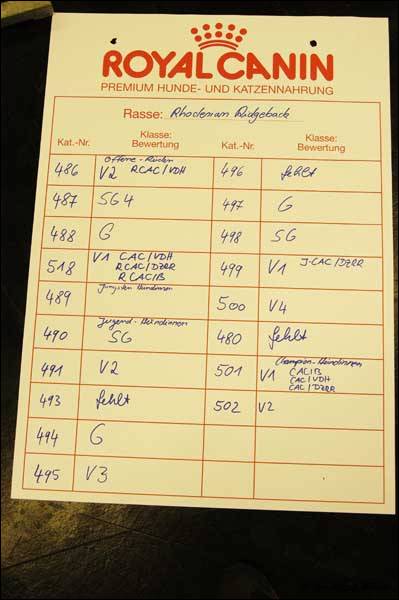 ROYAL CANIN
PREMIUM HUNDE- UND KATZENNAHRUNG
Rasse: Rhodesian Ridgeback
Kat.-Nr. Klasse: Bewertung Kat.-Nr. Klasse: Bewertung
Offene-Rüden
486 V2 RCAC/VDH 496 fehlt
487 SG 4 497 G
488 G 498 SG
518 V1 CAC/VDH 499 V1 J-CAC/DZRR
RCAC/DZRR
RCACIB
Jüngsten Hündinnen
489 500 V4
Jugend-Hündinnen
490 SG 480 fehlt
Champion-Hündinnen
491 V2 501 V1 CACIB
CAC/VDH
CAC/DZRR
493 fehlt 502 V2
494 G
495 V3